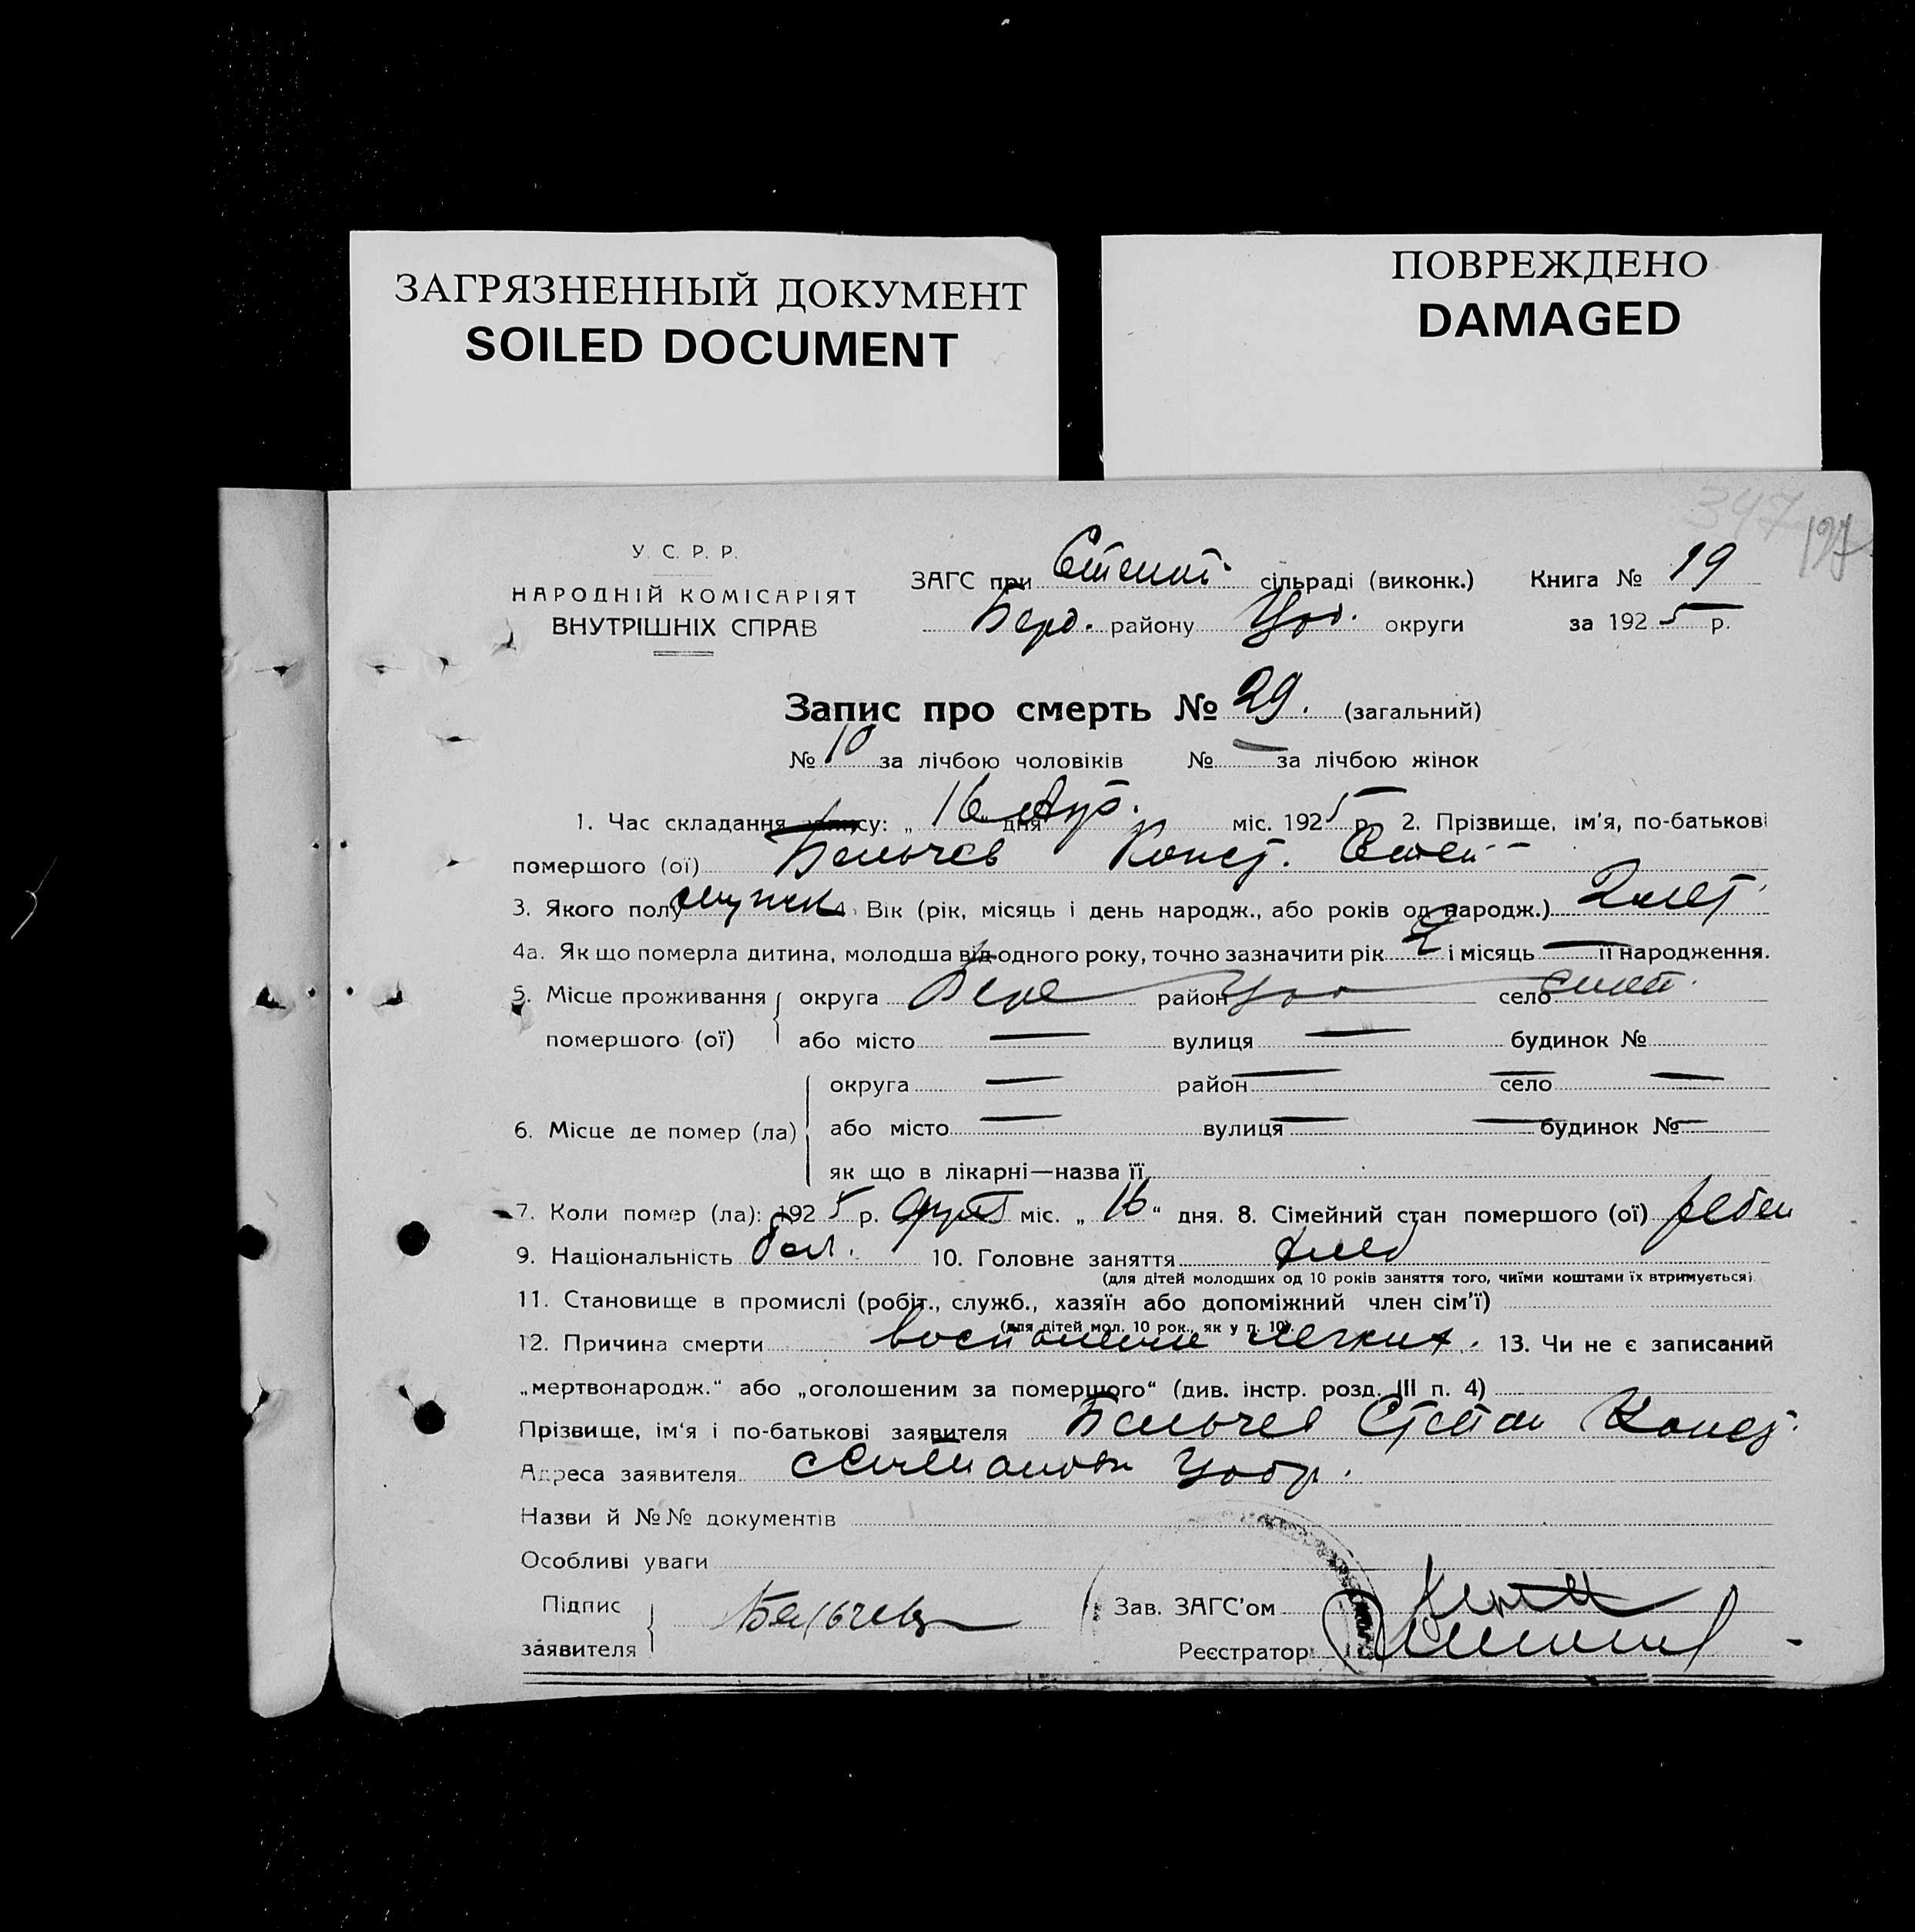 ЗАГРЯЗНЕННЫЙ ДОКУМЕНТ
SOILED DOCUMENT
ПОВРЕЖДЕНО
DAMAGED
347 197
У. С. Р. Р.
НАРОДНІЙ КОМІСАРІЯТ
ВНУТРІШНІХ СПРАВ
ЗАГС при сільраді (виконк.) Книга № 19
Берд. району округи за 1925 р.
Запис про смерть № 29. (загальний)
№ 10 за лічбою чоловіків № — за лічбою жінок
1. Час складання запису: „16“ дня міс. 1925 р. 2. Прізвище, ім'я, по-батькові
помершого (ої) Бельчев Конст.
3. Якого полу мужск 4. Вік (рік, місяць і день народж., або років од народж.) 2 лет
4а. Як що померла дитина, молодша від одного року, точно зазначити рік 2 і місяць — її народження.
5. Місце проживання помершого (ої) округа Берд район село
або місто — вулиця — будинок №
6. Місце де помер (ла) округа — район — село —
або місто — вулиця — будинок № —
як що в лікарні—назва її
7. Коли помер (ла): 1925 р. міс. „16“ дня. 8. Сімейний стан помершого (ої) ребен
9. Національність бол. 10. Головне заняття
(для дітей молодших од 10 років заняття того, чиїми коштами їх втримується)
11. Становище в промислі (робіт., служб., хазяїн або допоміжний член сім'ї)
(для дітей мол. 10 рок., як у п. 10).
12. Причина смерти воспаление легких. 13. Чи не є записаний
„мертвонародж.“ або „оголошеним за помершого“ (див. інстр. розд. III п. 4)
Прізвище, ім'я і по-батькові заявителя Бельчев Степан Конст.
Адреса заявителя
Назви й №№ документів
Особливі уваги
Підпис заявителя Бельчев
Зав. ЗАГС'ом
Реєстратор